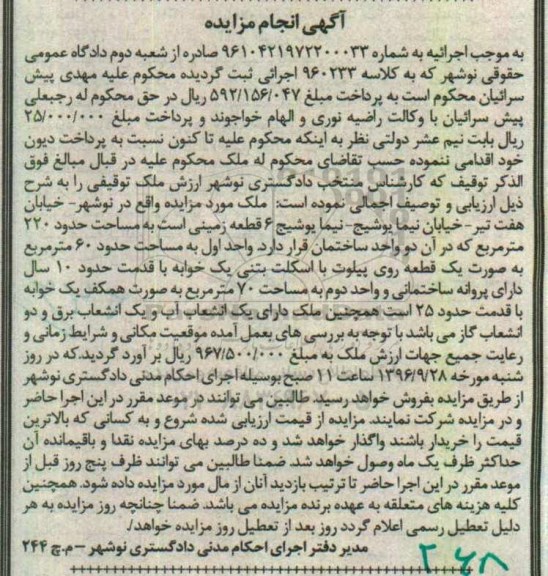 آگهی انجام مزایده
به موجب اجرائیه به شماره ۹۶۱۰۴۲۱۹۷۲۲۰۰۰۳۳ صادره از شعبه دوم دادگاه عمومی
حقوقی نوشهر که به کلاسه ۹۶۰۲۳۳ اجرائی ثبت گردیده محکوم علیه مهدی پیش
سرائیان محکوم است به پرداخت مبلغ ۵۹۲/۱۵۶/۰۴۷ ریال در حق محکوم له رجبعلی
پیش سرائیان با وکالت راضیه نوری و الهام خواجوند و پرداخت مبلغ ۲۵/۰۰۰/۰۰۰
ریال بابت نیم عشر دولتی نظر به اینکه محکوم علیه تا کنون نسبت به پرداخت دیون
خود اقدامی ننموده حسب تقاضای محکوم له ملک محکوم علیه در قبال مبالغ فوق
الذکر توقیف که کارشناس منتخب دادگستری نوشهر ارزش ملک توقیفی را به شرح
ذیل ارزیابی و توصیف اجمالی نموده است: ملک مورد مزایده واقع در نوشهر- خیابان
هفت تیر- خیابان نیما یوشیج- نیما یوشیج ۶ قطعه زمینی است به مساحت حدود ۲۲۰
مترمربع که در آن دو واحد ساختمان قرار دارد. واحد اول به مساحت حدود ۶۰ مترمربع
به صورت یک قطعه روی پیلوت با اسکلت بتنی یک خوابه با قدمت حدود ۱۰ سال
دارای پروانه ساختمانی و واحد دوم به مساحت ۷۰ مترمربع به صورت همکف یک خوابه
با قدمت حدود ۲۵ است همچنین ملک دارای یک انشعاب آب و یک انشعاب برق و دو
انشعاب گاز می باشد با توجه به بررسی های بعمل آمده موقعیت مکانی و شرایط زمانی و
رعایت جمیع جهات ارزش ملک به مبلغ ۹۶۷/۵۰۰/۰۰۰ ریال بر آورد گردید.که در روز
شنبه مورخه ۱۳۹۶/۹/۲۸ ساعت ۱۱ صبح بوسیله اجرای احکام مدنی دادگستری نوشهر
از طریق مزایده بفروش خواهد رسید. طالبین می توانند در موعد مقرر در این اجرا حاضر
و در مزایده شرکت نمایند. مزایده از قیمت ارزیابی شده شروع و به کسانی که بالاترین
قیمت را خریدار باشند واگذار خواهد شد و ده درصد بهای مزایده نقدا و باقیمانده آن
حداکثر ظرف یک ماه وصول خواهد شد. ضمنا طالبین می توانند ظرف پنج روز قبل از
موعد مقرر در این اجرا حاضر تا ترتیب بازدید آنان از مال مورد مزایده داده شود. همچنین
کلیه هزینه های متعلقه به عهده برنده مزایده می باشد. ضمنا چنانچه روز مزایده به هر
دلیل تعطیل رسمی اعلام گردد روز بعد از تعطیل روز مزایده خواهد/.
مدیر دفتر اجرای احکام مدنی دادگستری نوشهر – م.چ ۲۴۴